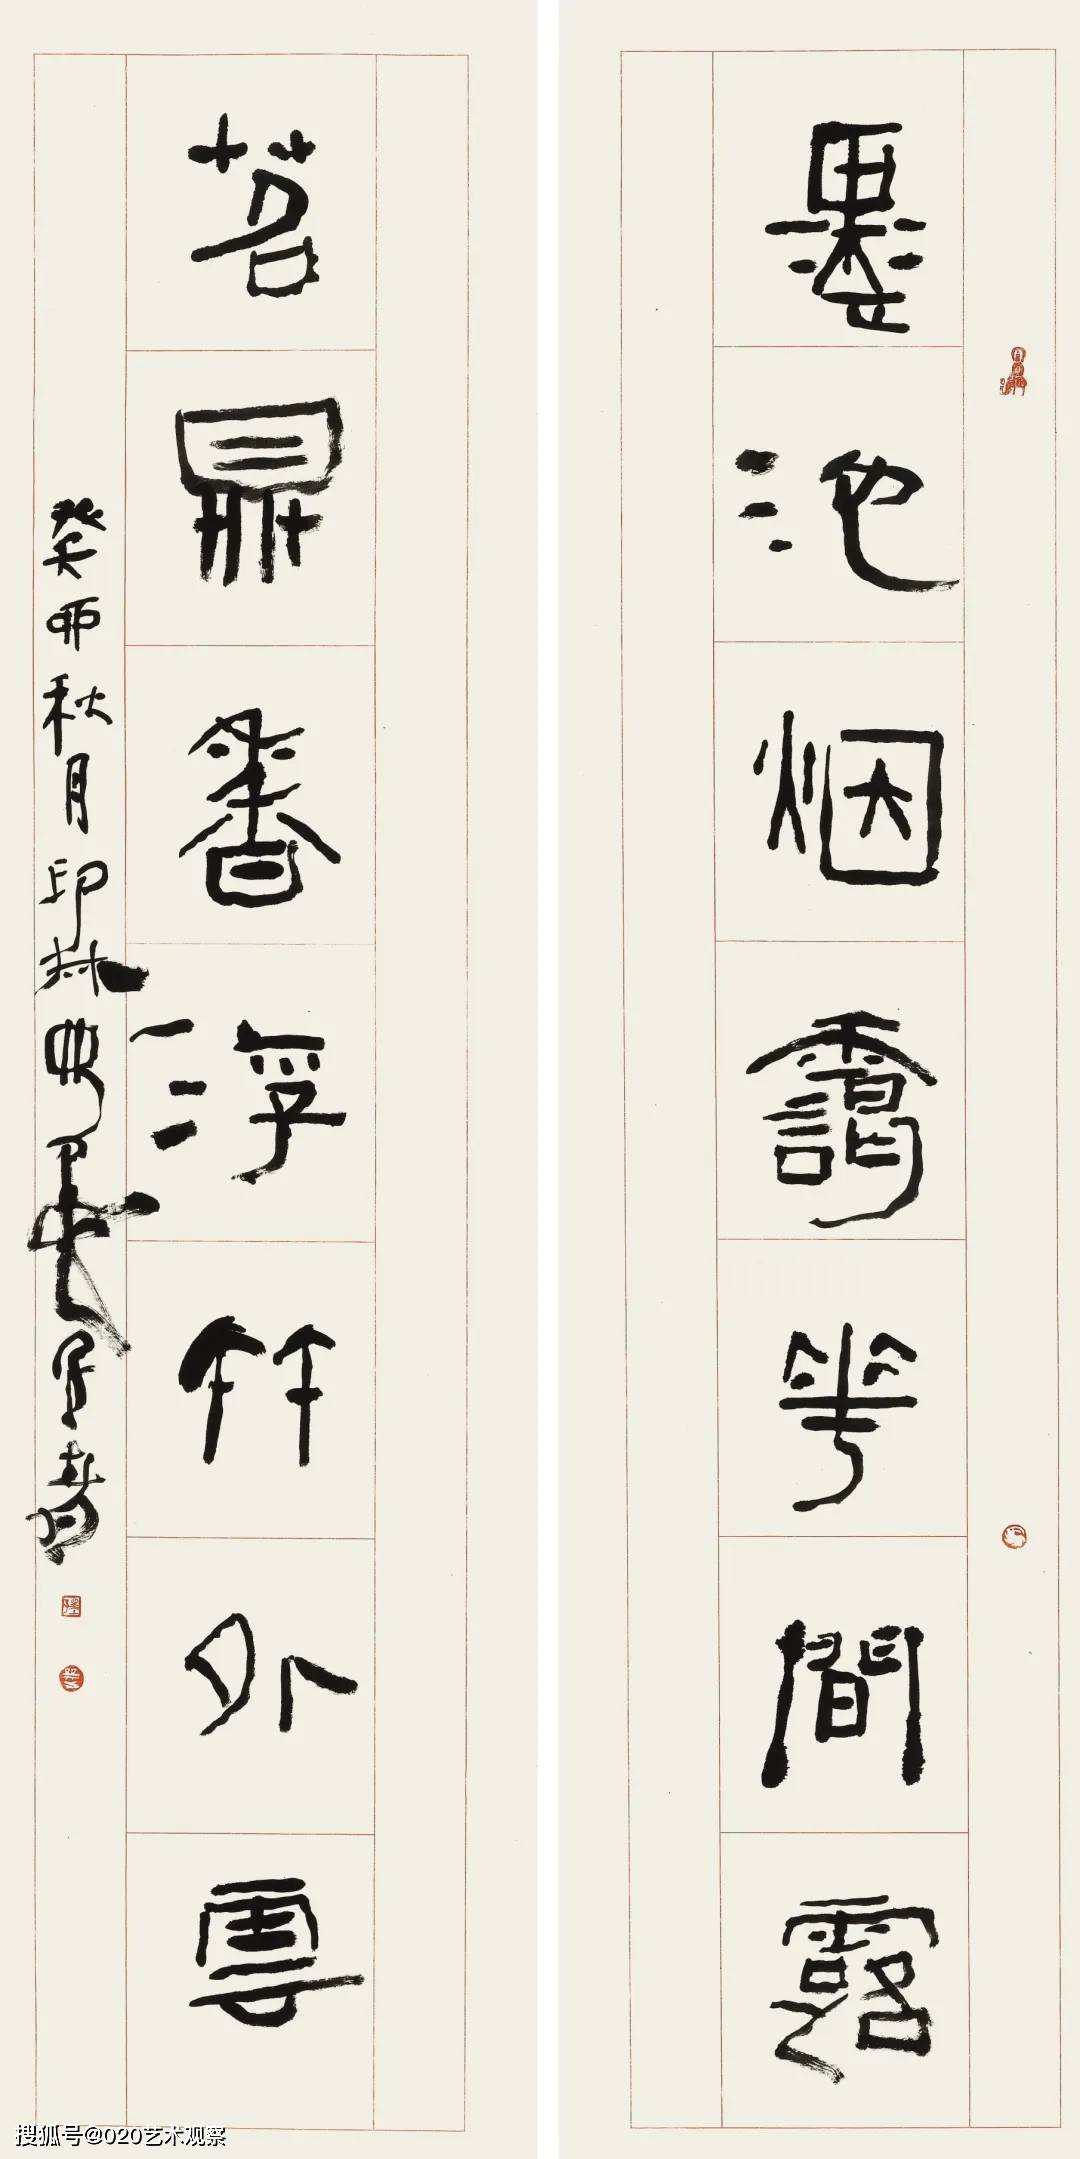 墨池烟靄華間露
茗鼎香浮竹外雲
癸卯秋月印林
搜狐号@020艺术观察